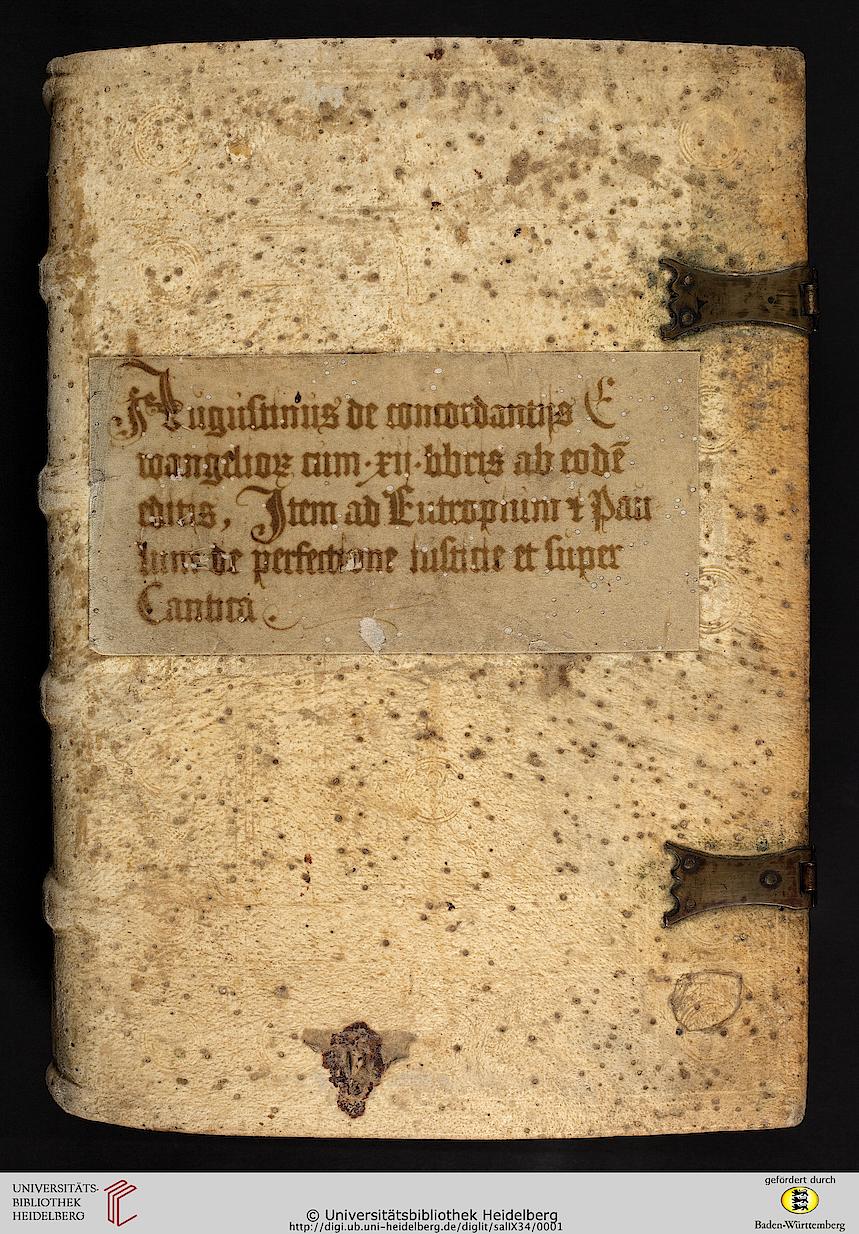 Augustinus de concordantijs E
wangelioꝝ cum ·xij· libris ab eodē
editis, Item ad Eutropium ⁊ Pau
lum de perfectione iusticie et super
Cantica.
UNIVERSITÄTS-
BIBLIOTHEK
HEIDELBERG
© Universitätsbibliothek Heidelberg
http://digi.ub.uni-heidelberg.de/diglit/salIX34/0001
gefördert durch
Baden-Württemberg